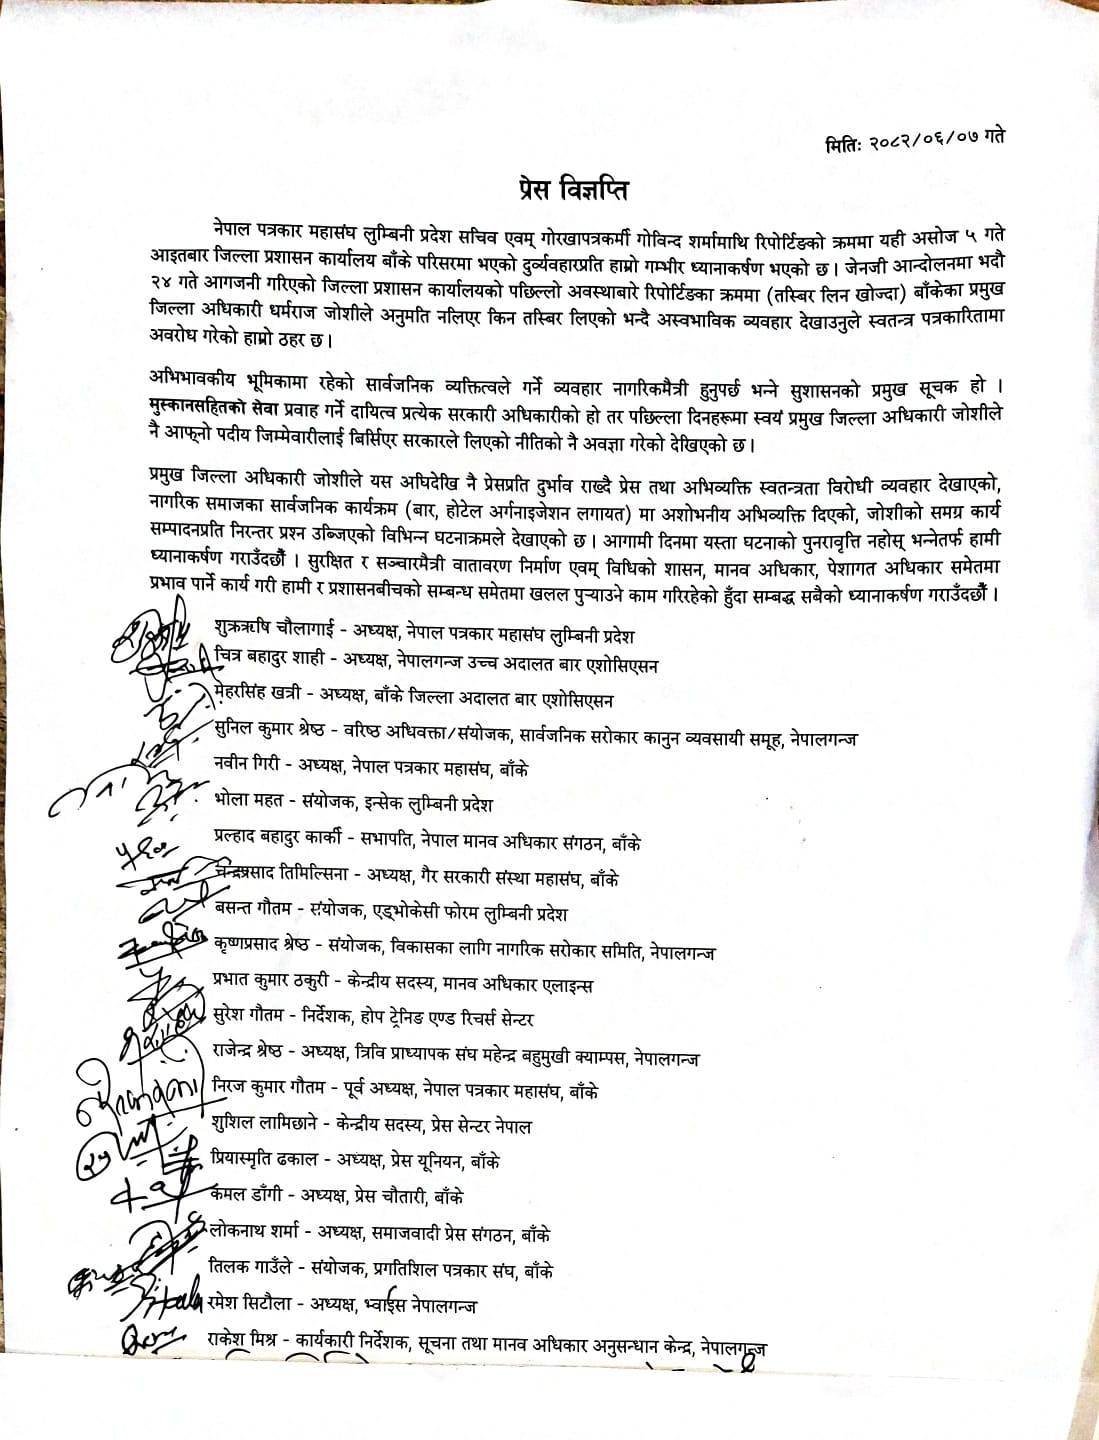 मितिः २०८२/०६/०७ गते
प्रेस विज्ञप्ति
नेपाल पत्रकार महासंघ लुम्बिनी प्रदेश सचिव एवम् गोरखापत्रकर्मी गोविन्द शर्मामाथि रिपोर्टिङको क्रममा यही असोज ५ गते
आइतबार जिल्ला प्रशासन कार्यालय बाँके परिसरमा भएको दुर्व्यवहारप्रति हाम्रो गम्भीर ध्यानाकर्षण भएको छ। जेनजी आन्दोलनमा भदौ
२४ गते आगजनी गरिएको जिल्ला प्रशासन कार्यालयको पछिल्लो अवस्थाबारे रिपोर्टिङका क्रममा (तस्बिर लिन खोज्दा) बाँकेका प्रमुख
जिल्ला अधिकारी धर्मराज जोशीले अनुमति नलिएर किन तस्बिर लिएको भन्दै अस्वभाविक व्यवहार देखाउनुले स्वतन्त्र पत्रकारितामा
अवरोध गरेको हाम्रो ठहर छ।
अभिभावकीय भूमिकामा रहेको सार्वजनिक व्यक्तित्वले गर्ने व्यवहार नागरिकमैत्री हुनुपर्छ भन्ने सुशासनको प्रमुख सूचक हो ।
मुस्कानसहितको सेवा प्रवाह गर्ने दायित्व प्रत्येक सरकारी अधिकारीको हो तर पछिल्ला दिनहरूमा स्वयं प्रमुख जिल्ला अधिकारी जोशीले
नै आफ्नो पदीय जिम्मेवारीलाई बिर्सिएर सरकारले लिएको नीतिको नै अवज्ञा गरेको देखिएको छ।
प्रमुख जिल्ला अधिकारी जोशीले यस अघिदेखि नै प्रेसप्रति दुर्भाव राख्दै प्रेस तथा अभिव्यक्ति स्वतन्त्रता विरोधी व्यवहार देखाएको,
नागरिक समाजका सार्वजनिक कार्यक्रम (बार, होटेल अर्गनाइजेशन लगायत) मा अशोभनीय अभिव्यक्ति दिएको, जोशीको समग्र कार्य
सम्पादनप्रति निरन्तर प्रश्न उब्जिएको विभिन्न घटनाक्रमले देखाएको छ। आगामी दिनमा यस्ता घटनाको पुनरावृत्ति नहोस् भन्नेतर्फ हामी
ध्यानाकर्षण गराउँदछौं । सुरक्षित र सञ्चारमैत्री वातावरण निर्माण एवम् विधिको शासन, मानव अधिकार, पेशागत अधिकार समेतमा
प्रभाव पार्ने कार्य गरी हामी र प्रशासनबीचको सम्बन्ध समेतमा खलल पुर्‍याउने काम गरिरहेको हुँदा सम्बद्ध सबैको ध्यानाकर्षण गराउँदछौं ।
शुक्रऋषि चौलागाई - अध्यक्ष, नेपाल पत्रकार महासंघ लुम्बिनी प्रदेश
चित्र बहादुर शाही - अध्यक्ष, नेपालगन्ज उच्च अदालत बार एशोसिएसन
मेहरसिंह खत्री - अध्यक्ष, बाँके जिल्ला अदालत बार एशोसिएसन
सुनिल कुमार श्रेष्ठ - वरिष्ठ अधिवक्ता/संयोजक, सार्वजनिक सरोकार कानुन व्यवसायी समूह, नेपालगन्ज
नवीन गिरी - अध्यक्ष, नेपाल पत्रकार महासंघ, बाँके
भोला महत - संयोजक, इन्सेक लुम्बिनी प्रदेश
प्रल्हाद बहादुर कार्की - सभापति, नेपाल मानव अधिकार संगठन, बाँके
चन्द्रप्रसाद तिमिल्सिना - अध्यक्ष, गैर सरकारी संस्था महासंघ, बाँके
बसन्त गौतम - संयोजक, एड्भोकेसी फोरम लुम्बिनी प्रदेश
कृष्णप्रसाद श्रेष्ठ - संयोजक, विकासका लागि नागरिक सरोकार समिति, नेपालगन्ज
प्रभात कुमार ठकुरी - केन्द्रीय सदस्य, मानव अधिकार एलाइन्स
सुरेश गौतम - निर्देशक, होप ट्रेनिङ एण्ड रिचर्स सेन्टर
राजेन्द्र श्रेष्ठ - अध्यक्ष, त्रिवि प्राध्यापक संघ महेन्द्र बहुमुखी क्याम्पस, नेपालगन्ज
निरज कुमार गौतम - पूर्व अध्यक्ष, नेपाल पत्रकार महासंघ, बाँके
शुशिल लामिछाने - केन्द्रीय सदस्य, प्रेस सेन्टर नेपाल
प्रियास्मृति ढकाल - अध्यक्ष, प्रेस यूनियन, बाँके
कमल डाँगी - अध्यक्ष, प्रेस चौतारी, बाँके
लोकनाथ शर्मा - अध्यक्ष, समाजवादी प्रेस संगठन, बाँके
तिलक गाउँले - संयोजक, प्रगतिशिल पत्रकार संघ, बाँके
रमेश सिटौला - अध्यक्ष, भ्वाईस नेपालगन्ज
राकेश मिश्र - कार्यकारी निर्देशक, सूचना तथा मानव अधिकार अनुसन्धान केन्द्र, नेपालगन्ज